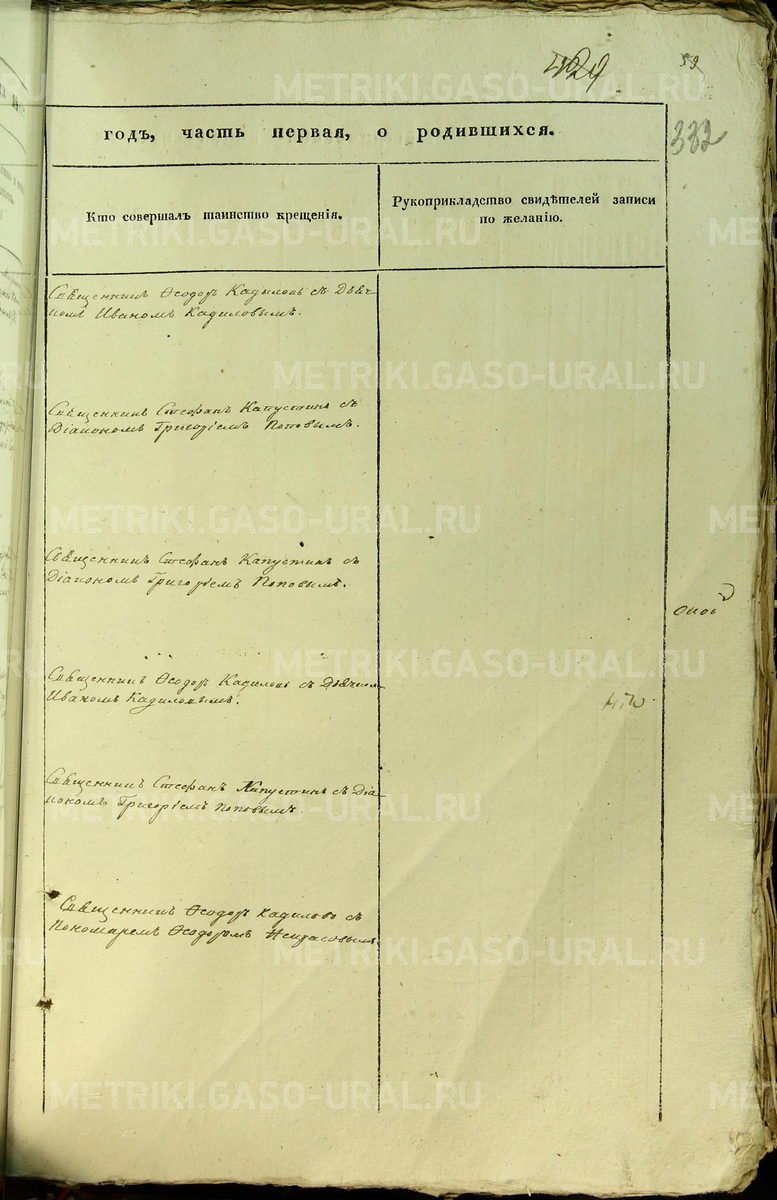 59
332
годъ, часть первая, о родившихся.
Кто совершалъ таинство крещенія.
Рукоприкладство свидѣтелей записи
по желанію.
Священникъ Ѳеодоръ Кадиловъ съ Дьяч-
комъ Иваномъ Кадиловымъ.
Священникъ Стефанъ Капустинъ съ
Діакономъ Григоріемъ Поповымъ.
Священникъ Стефанъ Капустинъ съ
Діакономъ Григоріемъ Поповымъ.
Священникъ Ѳеодоръ Кадиловъ съ Дьячком
Иваномъ Кадиловымъ.
Священникъ Стефанъ Капустинъ съ Діа-
кономъ Григоріемъ Поповымъ.
Священникъ Ѳеодоръ Кадиловъ съ
Пономаремъ Ѳеодоромъ Некрасовымъ.
METRIKI.GASO-URAL.RU